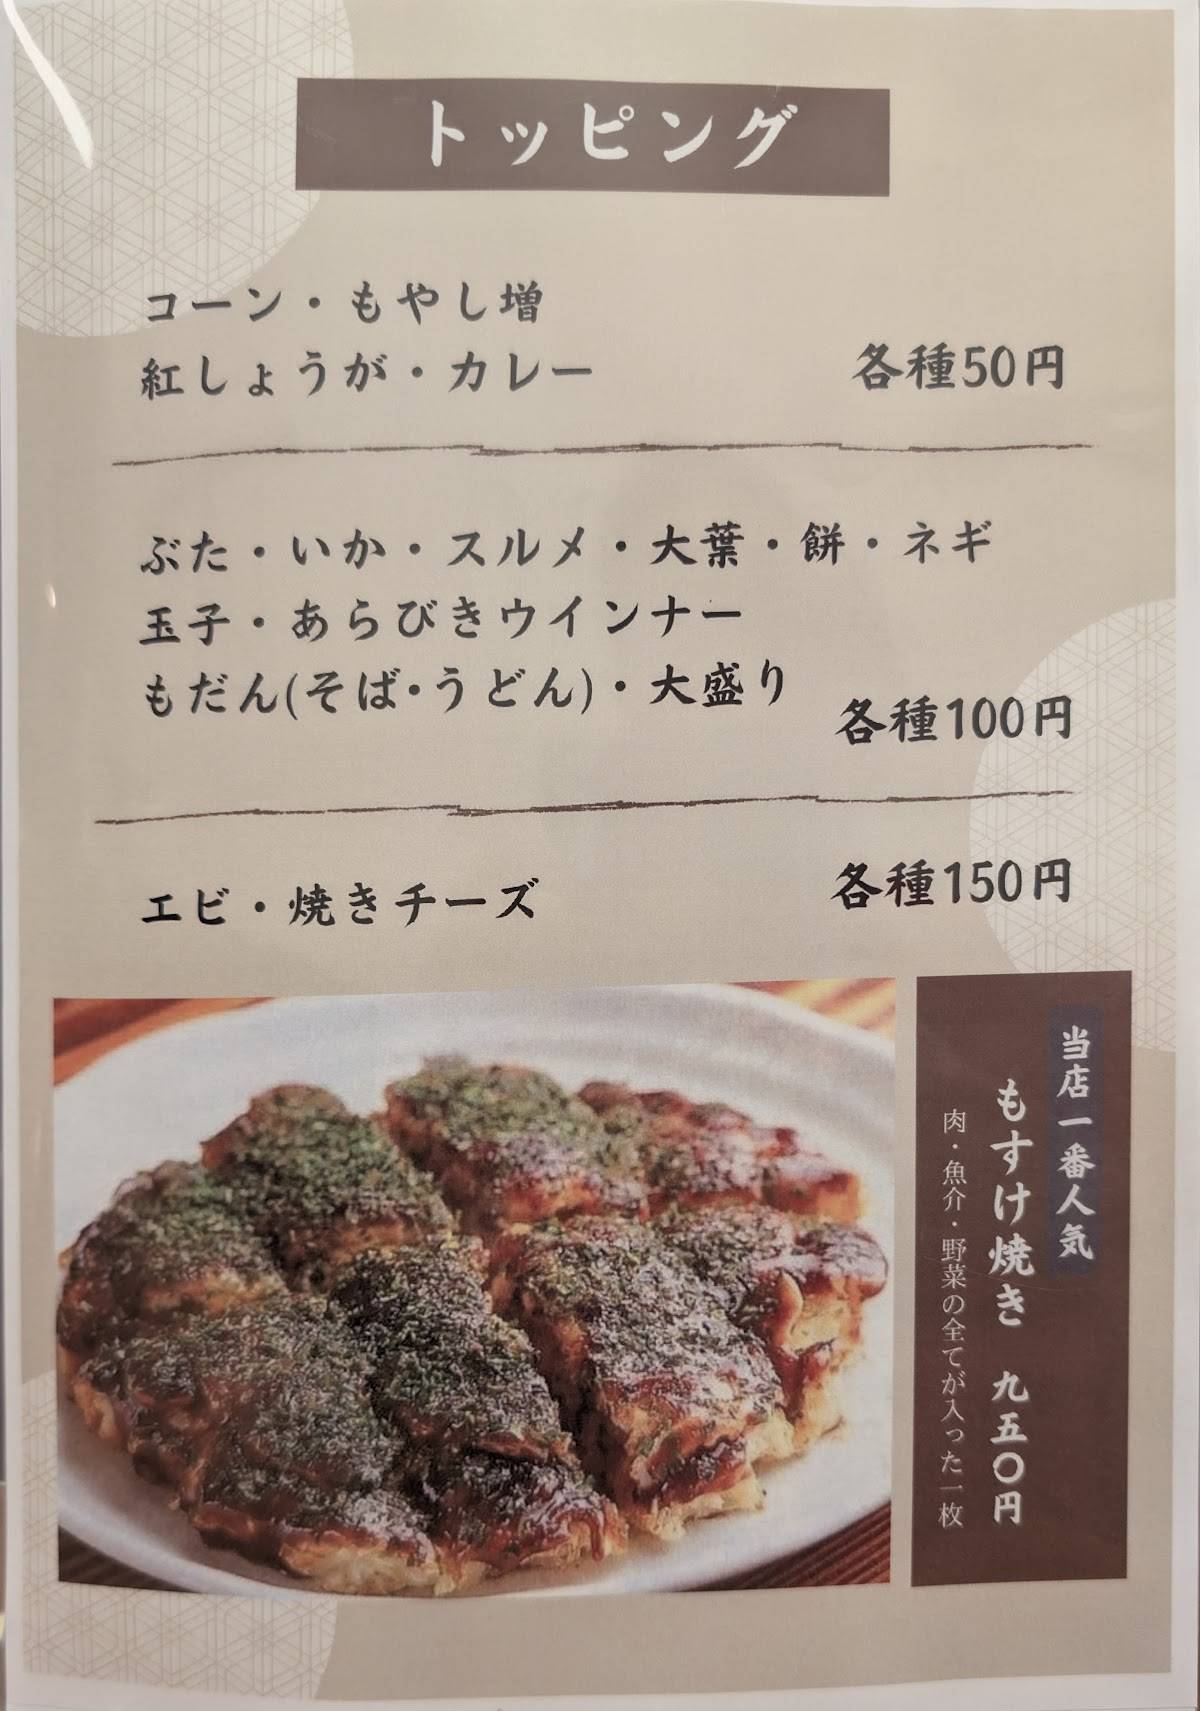 トッピング
コーン・もやし増
紅しょうが・カレー
各種50円
ぶた・いか・スルメ・大葉・餅・ネギ
玉子・あらびきウインナー
もだん(そば・うどん)・大盛り
各種100円
エビ・焼きチーズ
各種150円
当店一番人気
もすけ焼き 九五〇円
肉・魚介・野菜の全てが入った一枚